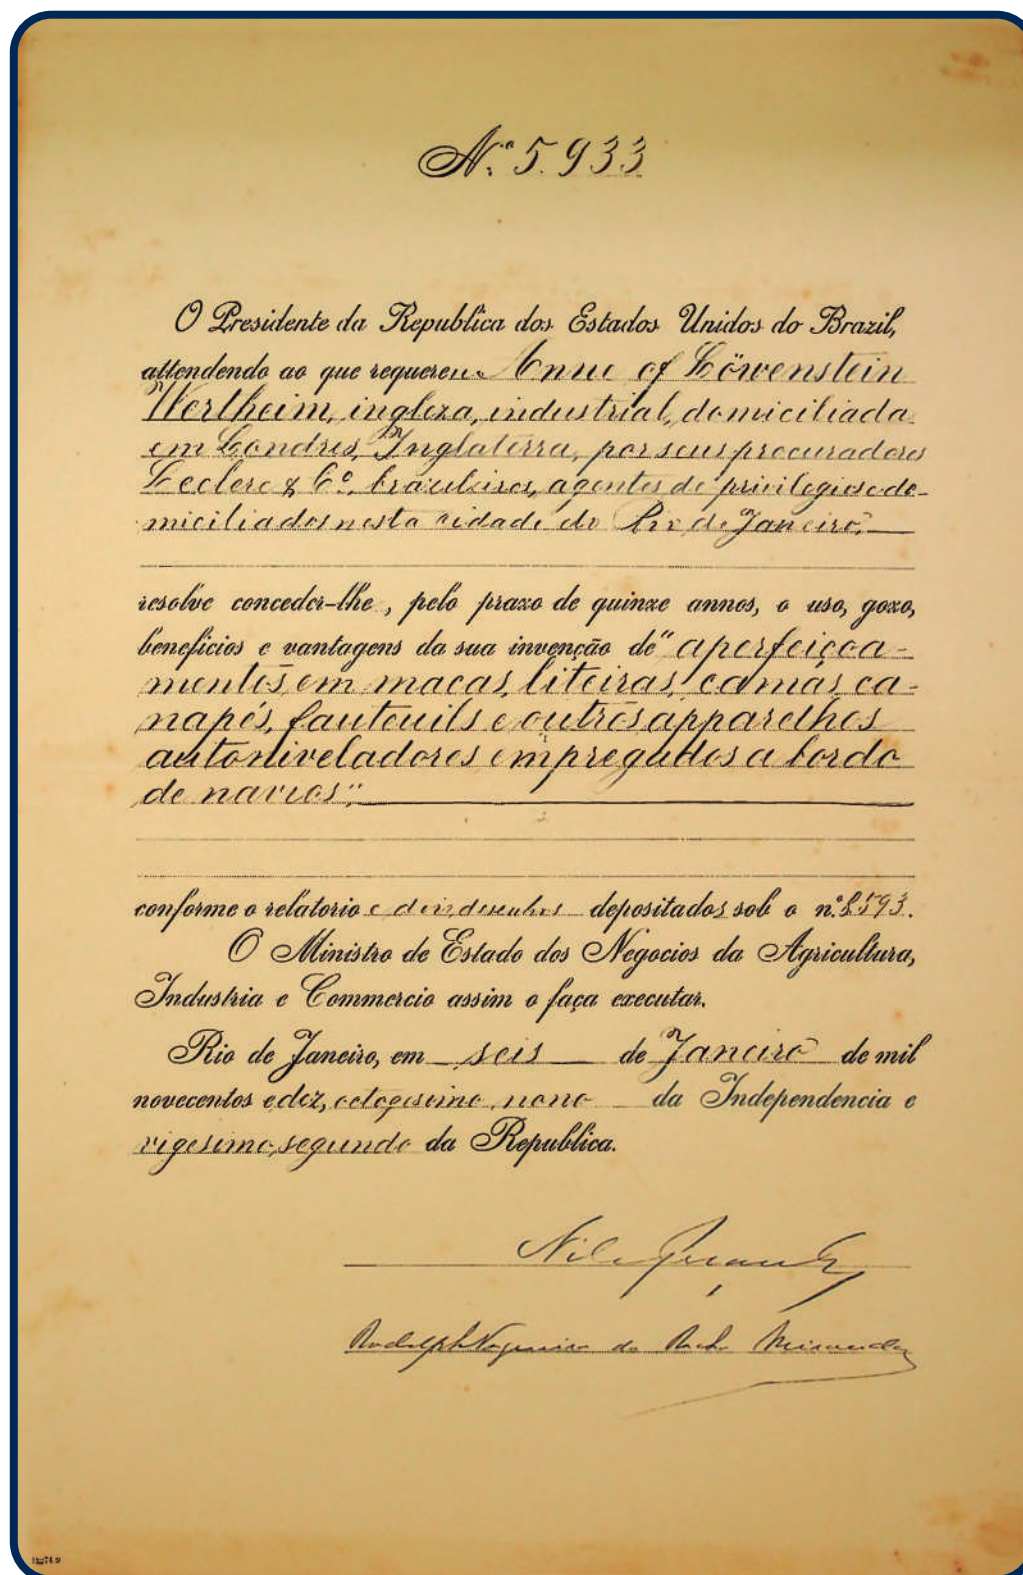 Nº 5.933
O Presidente da Republica dos Estados Unidos do Brazil,
attendendo ao que requereu Anne of Löwenstein
Wertheim, ingleza, industrial, domiciliada
em Londres, Inglaterra, por seus procuradores
Leclerc & Cº, brazileiros, agentes de privilegios e do-
miciliados nesta cidade do Rio de Janeiro,
resolve conceder-lhe, pelo prazo de quinze annos, o uso, gozo,
beneficios e vantagens da sua invenção de "aperfeiçoa-
mentos em macas, liteiras, camas, ca-
napés, fauteuils e outros apparelhos
autoniveladores empregados a bordo
de navios",
conforme o relatorio e dois desenhos depositados sob o nº 8.593.
O Ministro de Estado dos Negocios da Agricultura,
Industria e Commercio assim o faça executar.
Rio de Janeiro, em seis de Janeiro de mil
novecentos e dez, octogesimo nono da Independencia e
vigesimo segundo da Republica.
Nilo Peçanha
Rodolpho Nogueira da Rocha Miranda